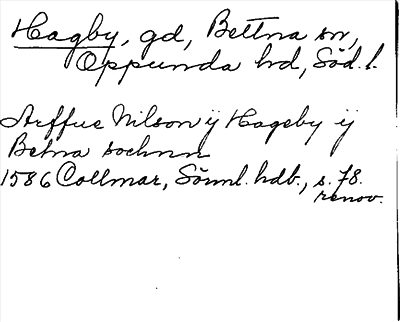 Hagby, gd, Bettna sn,
Oppunda hd, Söd.l.
Arffue Nilson ij Hageby ij
Betna sochnn
1586 Collmar, Sörml. hdb., s. 78.
renov.